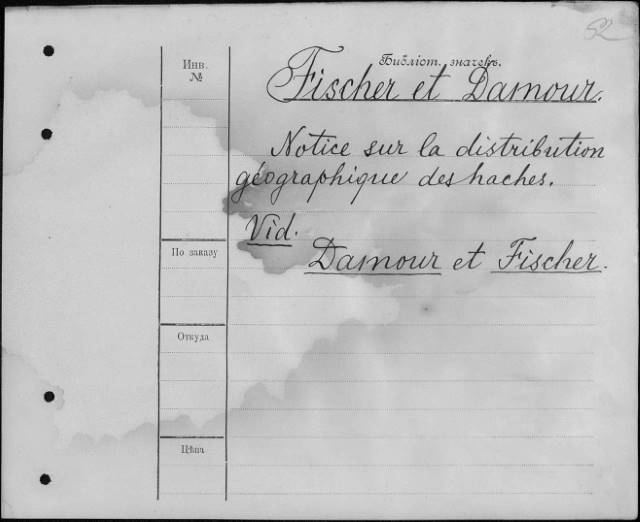 52
Инв.
№
Библіот. значекъ.
Fischer et Damour.
Notice sur la distribution
géographique des haches.
Vid.
Damour et Fischer.
По заказу
Откуда
Цѣна